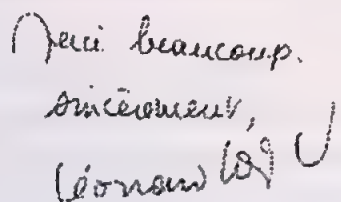 Merci beaucoup.
sincèrement,
Léonard